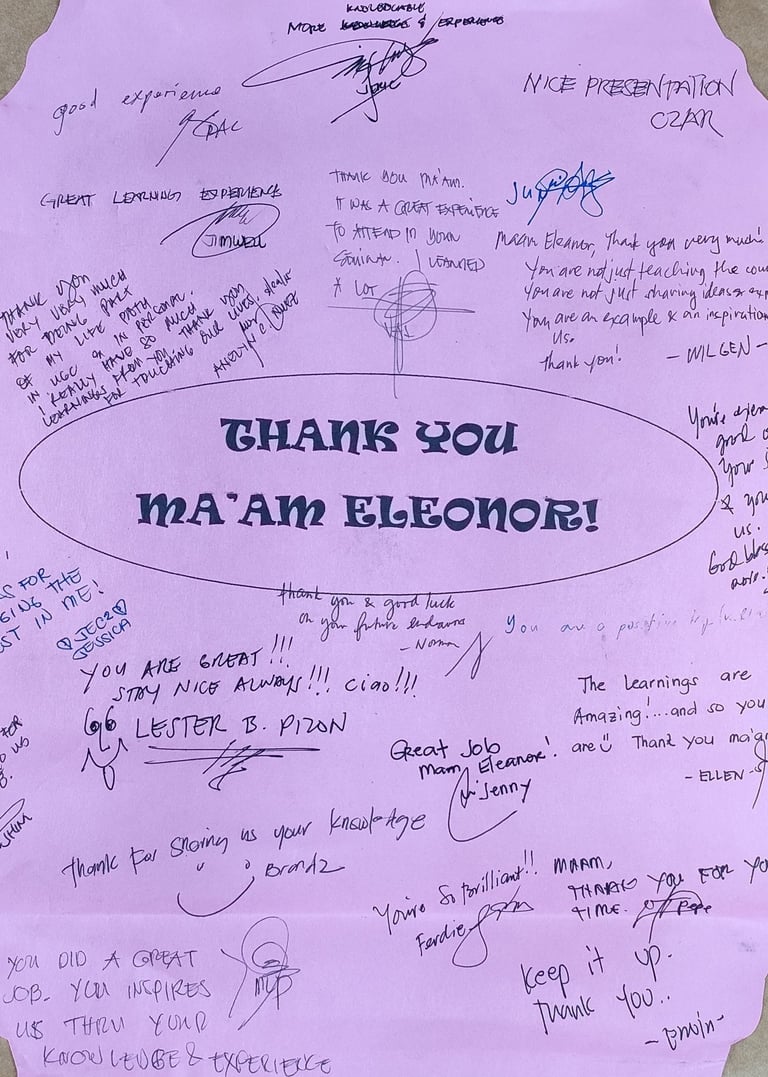 KNOWLEDGABLE
MORE & EXPERIENCE
good experience
NICE PRESENTATION
CZAR
GREAT LEARNING EXPERIENCE
JIMWELL
THANK YOU MA'AM.
IT WAS A GREAT EXPERIENCE
TO ATTEND IN YOUR
I LEARNED
A LOT
Maam Eleanor, Thank you very much!
You are not just teaching the
You are not just sharing ideas &
You are an example & an inspiration
us.
Thank you!
- WILGEN -
THANK YOU
VERY VERY MUCH
FOR BEING PART
OF MY LIFE PATH
IN UGC & IN PERSONAL.
I REALLY HAVE SO MUCH
LEARNINGS FROM YOU. THANK YOU
FOR TOUCHING OUR LIVES.
You're
good
your
& you
us.
God bless
more.
THANK YOU
MA'AM ELEONOR!
FOR
THE
IN ME!
JECZ
JESSICA
thank you & good luck
on your future endeavors
- Norman
You are a positive
YOU ARE GREAT!!!
STAY NICE ALWAYS!!! Ciao!!!
LESTER B. PIZON
The Learnings are
Amazing!...and so you
are Thank you ma'am
- ELLEN -
FOR
US
Great Job
Mam Eleanor!
Jenny
Thank For Sharing us your knowledge
Brandz
You're So Brilliant!!
Ferdie
MAAM,
THANK YOU FOR
TIME.
Pepe
YOU DID A GREAT
JOB. YOU INSPIRES
US THRU YOUR
KNOWLEDGE & EXPERIENCE
Keep it up.
Thank you..
- Erwin -